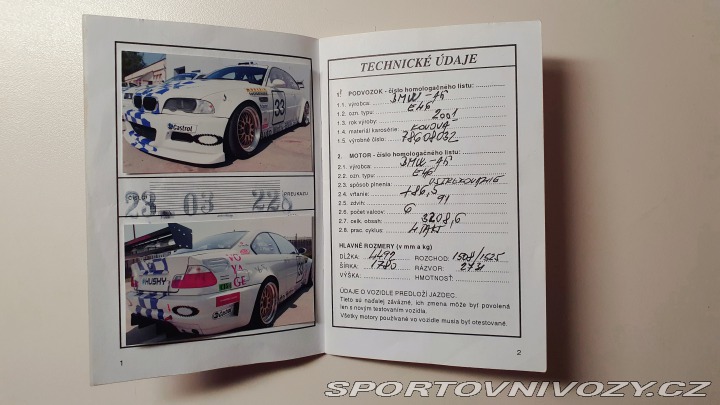 33
Castrol
ČÍSLO
23 03 228
PREUKAZU
HUSKY
VOYAGE
Castrol
1
TECHNICKÉ ÚDAJE
1. PODVOZOK - číslo homologačného listu:
1.1. výrobca: BMW-AG
1.2. ozn. typu: E46
1.3. rok výroby: 2001
1.4. materiál karosérie: KOVOVÁ
1.5. výrobné číslo: 78608032
2. MOTOR - číslo homologačného listu:
2.1. výrobca: BMW-AG
2.2. ozn. typu: E46
2.3. spôsob plnenia: VSTREKOVANIE
2.4. vŕtanie: 86,5
2.5. zdvih: 91
2.6. počet valcov: 6
2.7. celk. obsah: 3208,6
2.8. prac. cyklus: 4 TAKT
HLAVNÉ ROZMERY (v mm a kg)
DĹŽKA: 4492 ROZCHOD: 1508/1525
ŠÍRKA: 1780 RÁZVOR: 2731
VÝŠKA: HMOTNOSŤ:
ÚDAJE O VOZIDLE PREDLOŽÍ JAZDEC.
Tieto sú naďalej záväzné, ich zmena môže byť povolená
len s novým testovaním vozidla.
Všetky motory používané vo vozidle musia byť otestované.
2
SPORTOVNIVOZY.CZ